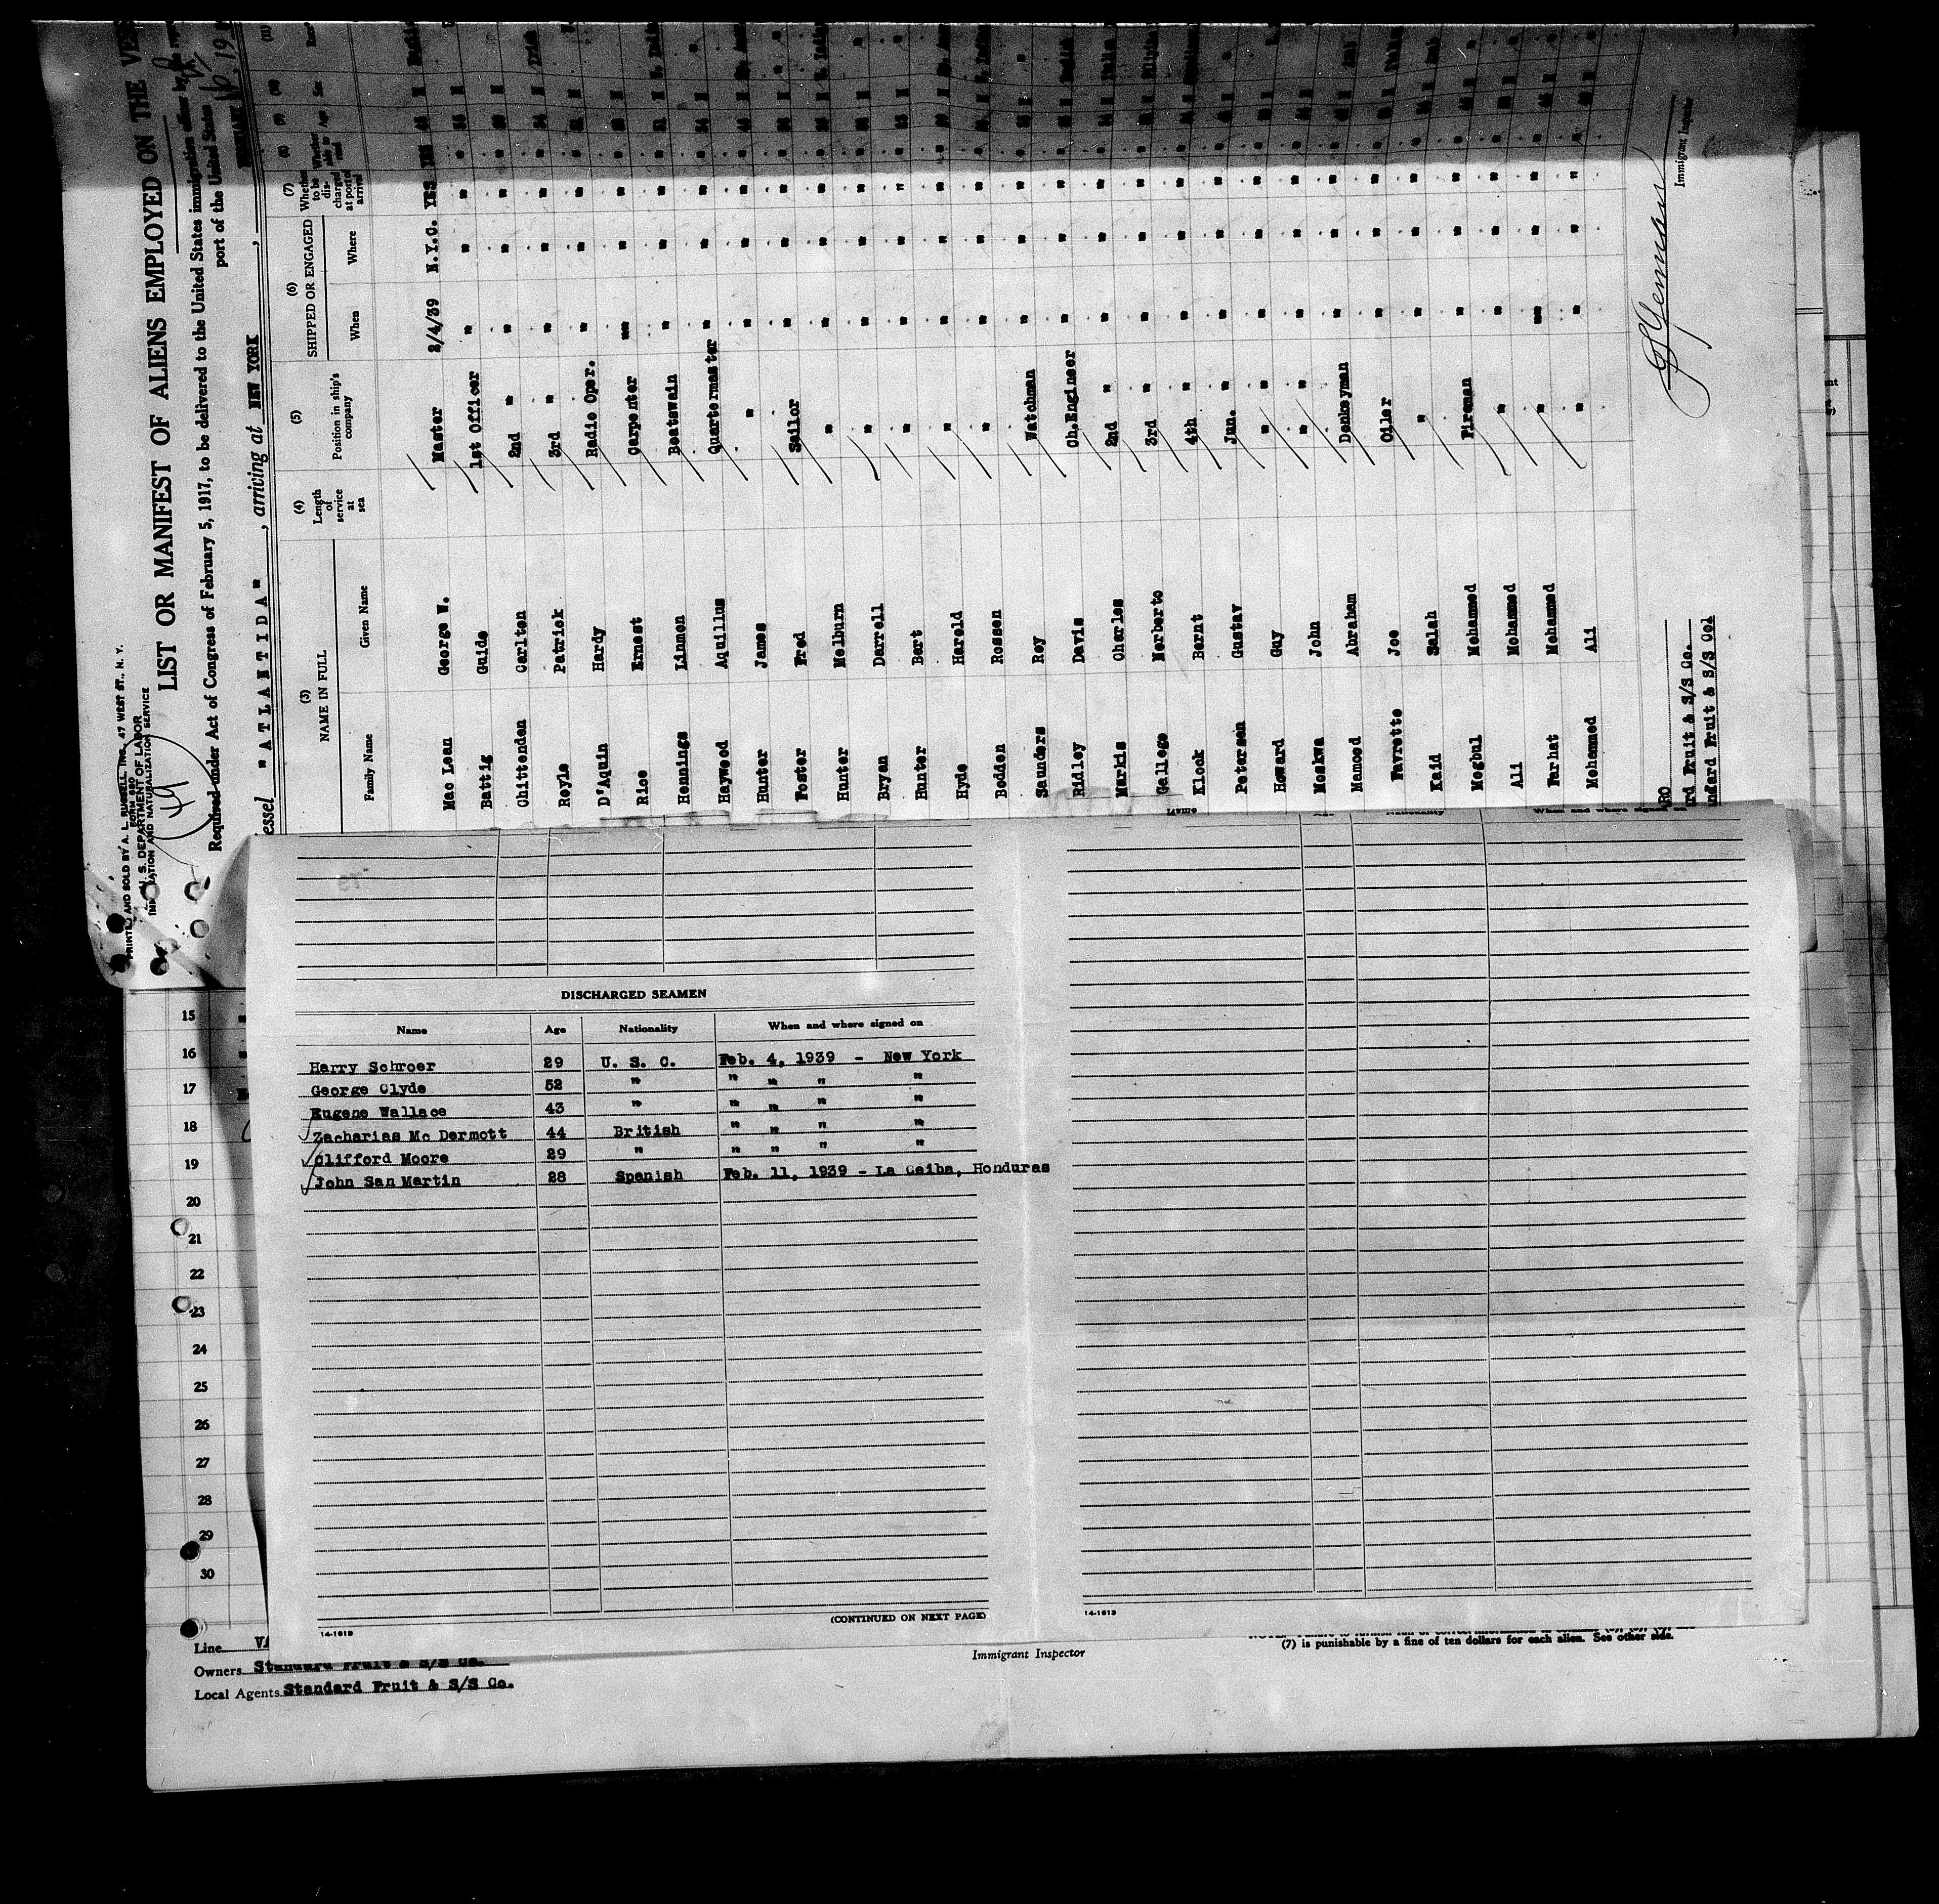 PRINTED AND SOLD BY A. L. RUSSELL, INC., 47 WEST ST., N. Y.
FORM 680
U. S. DEPARTMENT OF LABOR
IMMIGRATION AND NATURALIZATION SERVICE
49
LIST OR MANIFEST OF ALIENS EMPLOYED ON THE VES
Required under Act of Congress of February 5, 1917, to be delivered to the United States immigration officer by the
port of the United States
essel "ATLANTIDA", arriving at NEW YORK, 19
(3) (4) (5) (6) (7) (8) (9) (10) (11)
NAME IN FULL Length of service at sea Position in ship's company SHIPPED OR ENGAGED Whether to be discharged at port of arrival Whether able to read Age Sex Race
Family Name Given Name When Where
Mac Lean George W. Master 2/4/39 N.Y.C. YES YES
Battig Guido 1st Officer " " " "
Chittenden Carlton 2nd " " " " "
Royle Patrick 3rd " " " " "
D'Aquin Hardy Radio Oper. " " " "
Rice Ernest Carpenter " " " "
Hennings Linmon Boatswain " " " "
Haywood Aquillus Quartermaster " " " "
Hunter James " " " " "
Foster Fred Sailor " " " "
Hunter Melburn " " " " "
Bryan Darrell " " " " "
Hunter Bert " " " " "
Hyde Harold " " " " "
Bodden Rossen " " " " "
Saunders Roy Watchman " " " "
Ridley Davis Ch.Engineer " " " "
Markis Charles 2nd " " " " "
Gallego Norberto 3rd " " " " "
Klock Bernt 4th " " " " "
Petersen Gustav Jun. " " " " "
Howard Guy " " " " " "
Moskwa John " " " " " "
Mamood Abraham Donkeyman " " " "
Favrette Joe Oiler " " " "
Kaid Salah " " " " "
Mogbul Mohammed Fireman " " " "
Ali Mohamed " " " " "
Farhat Mohammed " " " " "
Mohammed Ali " " " " "
Immigrant Inspector
rd Fruit & S/S Co.
ndard Fruit & S/S Co.
Name Age Nationality When and where signed on
DISCHARGED SEAMEN
Name Age Nationality When and where signed on
Harry Schroer 29 U. S. C. Feb. 4, 1939 - New York
George Clyde 52 " " " " "
Eugene Wallace 43 " " " " "
Zacharias Mc Dermott 44 British " " " "
Clifford Moore 29 " " " " "
John San Martin 28 Spanish Feb. 11, 1939 - La Ceiba, Honduras
(CONTINUED ON NEXT PAGE)
14-1613
14-1613
15
16
17
18
19
20
21
22
23
24
25
26
27
28
29
30
Line VA
Owners Standard Fruit & S/S Co.
Local Agents Standard Fruit & S/S Co.
Immigrant Inspector
(7) is punishable by a fine of ten dollars for each alien. See other side.